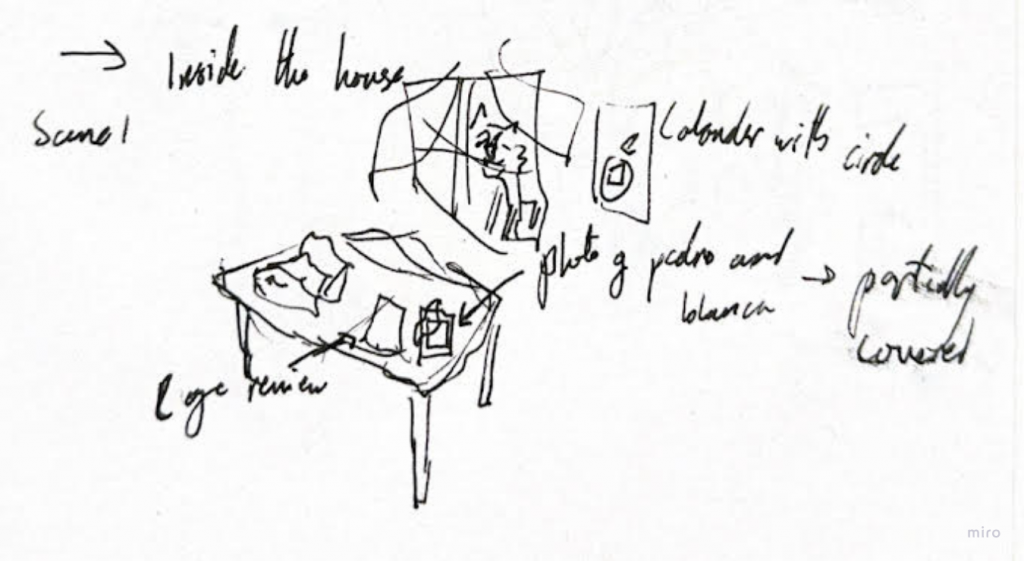 → Inside the house
Scene 1
Calander with circle
photo of pedro and
blanca
→ partially
covered
page review
miro